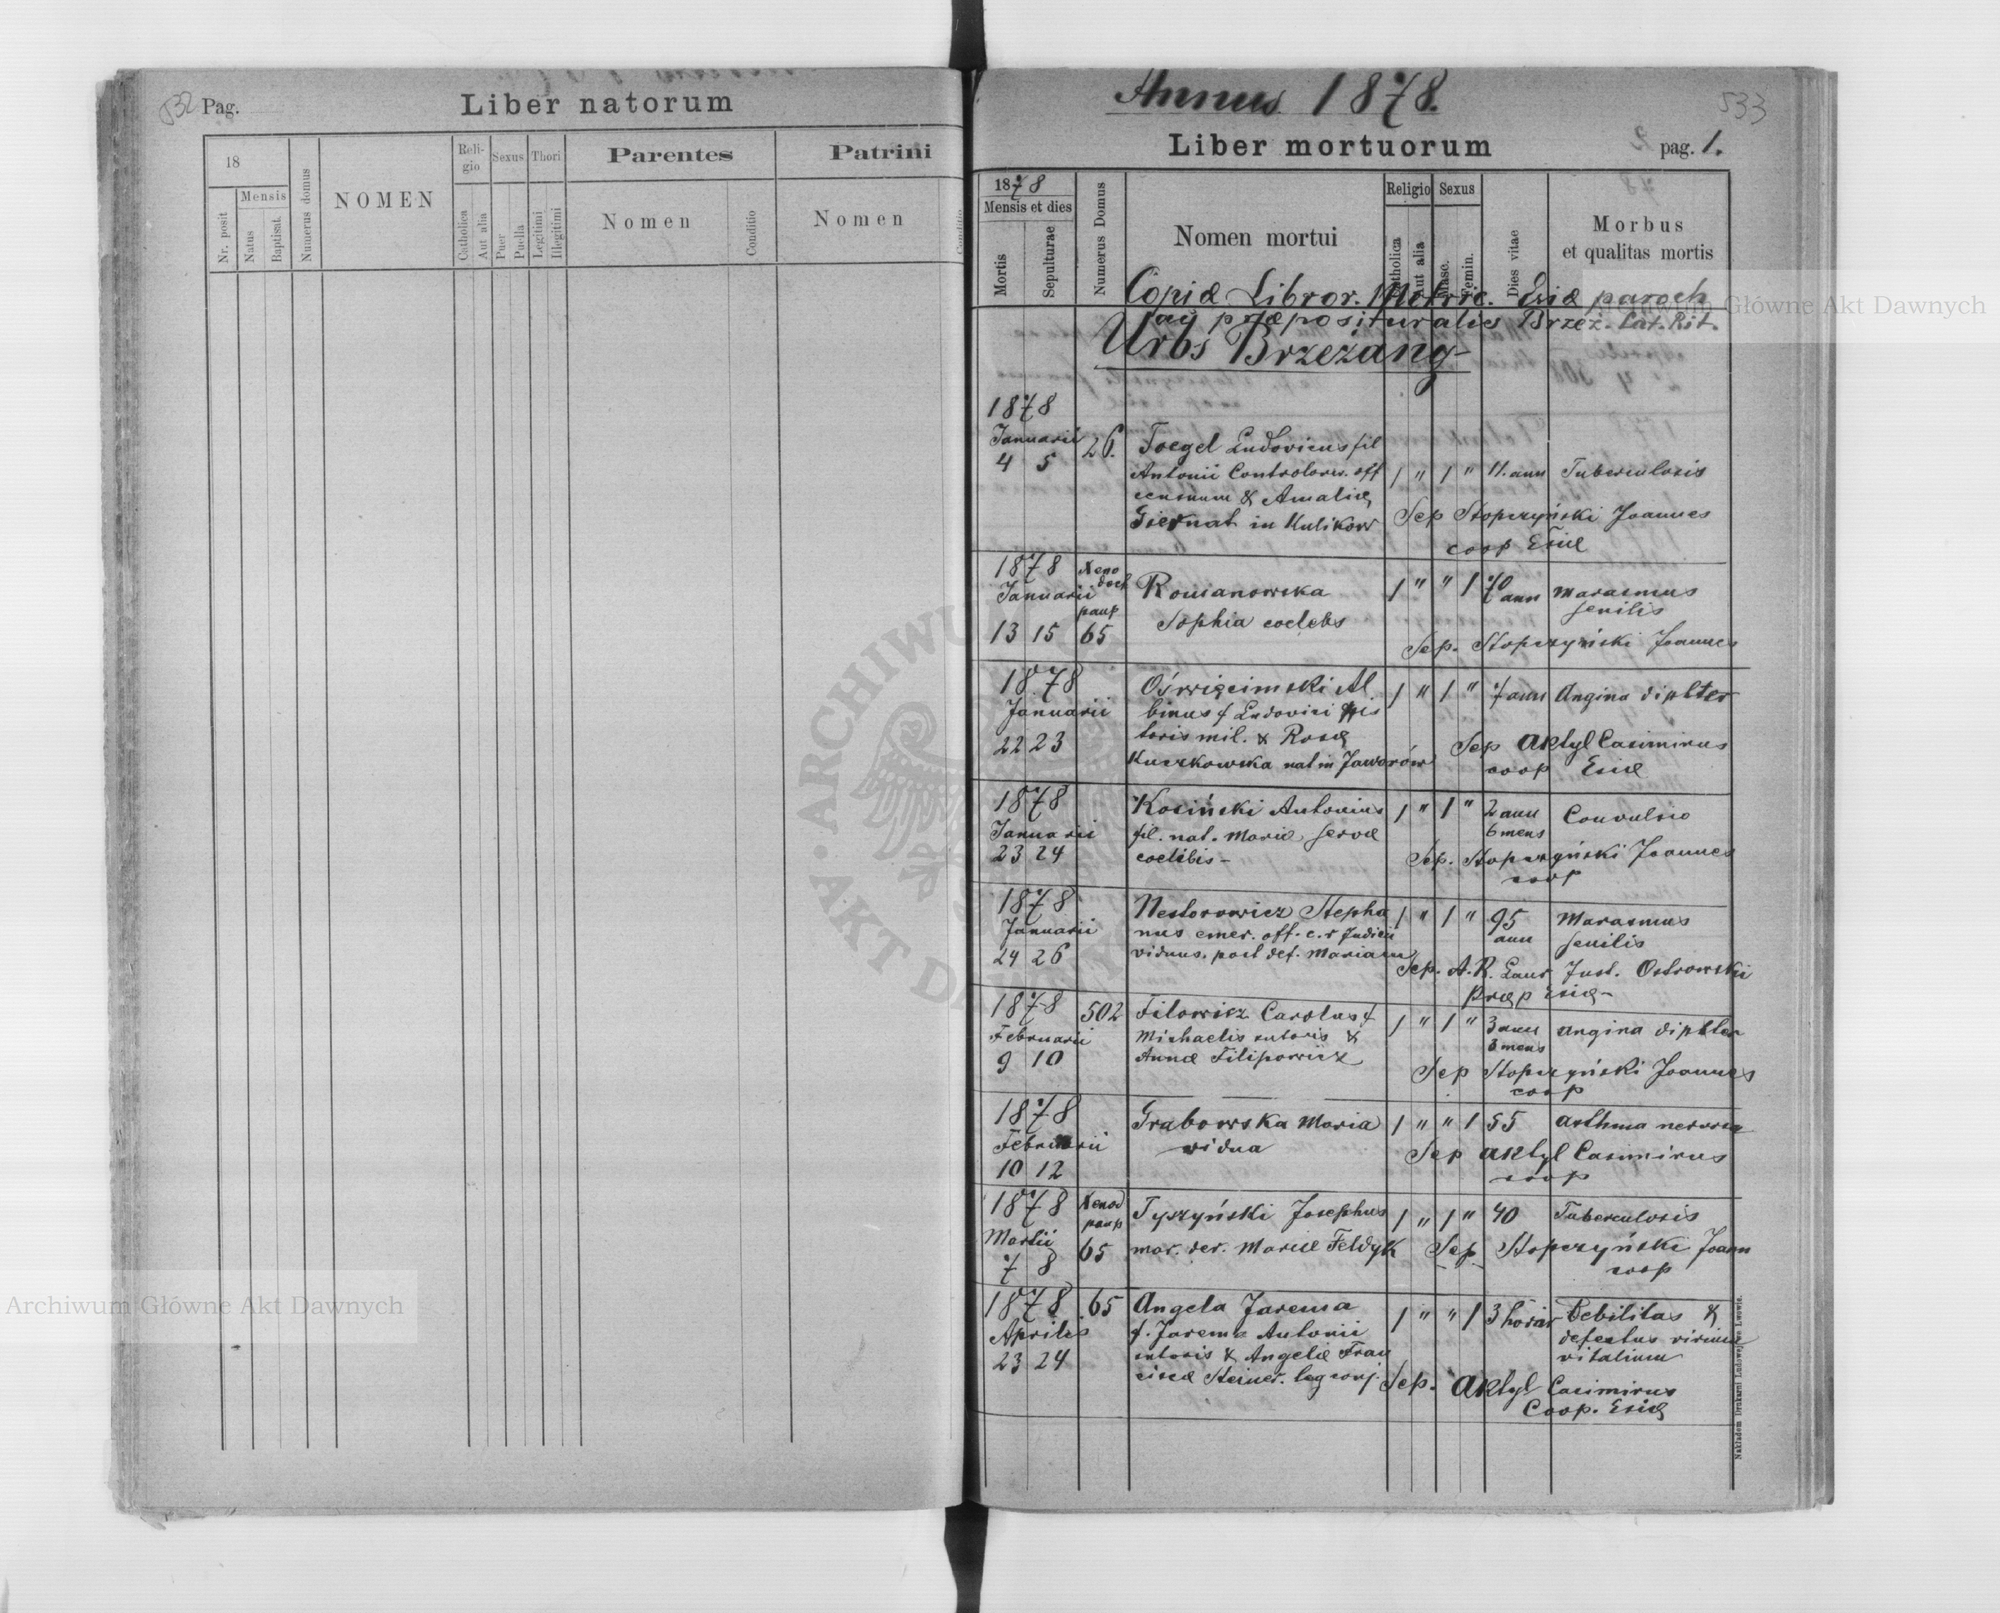 532 Pag.
Liber natorum
18
Nr. posit
Mensis
Natus
Baptisat.
Numerus domus
NOMEN
Religio
Catholica
Aut alia
Sexus
Puer
Puella
Thori
Legitimi
Illegitimi
Parentes
Nomen
Conditio
Patrini
Nomen
Conditio
Annus 1878.
533
Liber mortuorum
pag. 1.
1878
Mensis et dies
Mortis
Sepulturae
Numerus Domus
Nomen mortui
Religio
Catholica
Aut alia
Sexus
Masc.
Femin.
Dies vitae
Morbus
et qualitas mortis
Copiæ Libror. Metric. Esiæ paroch
præposituralis Brzeż. Lat. Rit.
Urbs Brzeżany
1878
Januarii
4 5
26.
Ludovicus fil
Antonii Controlor. off
censuum & Amaliæ
nat in Kulikow
1 " 1 " 11. ann Tuberculosis
Sep Stopczyński Joannes
coop Esiæ
1878
Januarii
13 15
Xeno
doch
paup
65
Romanowska
Sophia coelebs
1 " " 1 70 ann Marasmus
senilis
Sep. Stopczyński Joannes
1878
Januarii
22 23
Oświęcimski Al
binus f Ludovici pis
toris mil. & Rosæ
Kuczkowska nat in Jaworów
1 " 1 " 7 ann Angina diphter
Sep Aktyl Casimirus
coop Esiæ
1878
Januarii
23 24
Kosiński Antonius
fil. nat. Mariæ servæ
coelibis -
1 " 1 " 2 ann
6 mens
Convulsio
Sep. Stopczyński Joannes
coop
1878
Januarii
24 26
Nestorowicz Stepha
nus emer. off. c. r Judicii
viduus. post def. Mariam
1 " 1 " 95
ann
Marasmus
senilis
Sep. A. R. Laur Just. Ostrowski
Præp Esiæ -
1878
Februarii
9 10
502
Filowicz Carolus f
Michaelis sutoris &
Annæ Filipowicz
1 " 1 " 3 ann
3 mens
angina diphter
Sep Stopczyński Joannes
coop
1878
Februarii
10 12
Grabowska Maria
vidua
1 " " 1 55 asthma nervosa
Sep Aktyl Casimirus
coop
1878
Martii
7 8
Xenod
paup
65
Tyszyński Josephus
mar. der. Mariæ Feldyk
1 " 1 " 40 Tuberculosis
Sep Stopczyński Joann
coop
1878
Aprilis
23 24
65
Angela Jarema
f. Jarema Antonii
sutoris & Angelæ Fran
ciscæ Steiner. leg conj.
1 " " 1 3 horar Debilitas &
defectus virium
vitalium
Sep. Aktyl Casimirus
Coop. Esiæ
Nakładem Drukarni Ludowej we Lwowie.
Archiwum Główne Akt Dawnych
Archiwum Główne Akt Dawnych